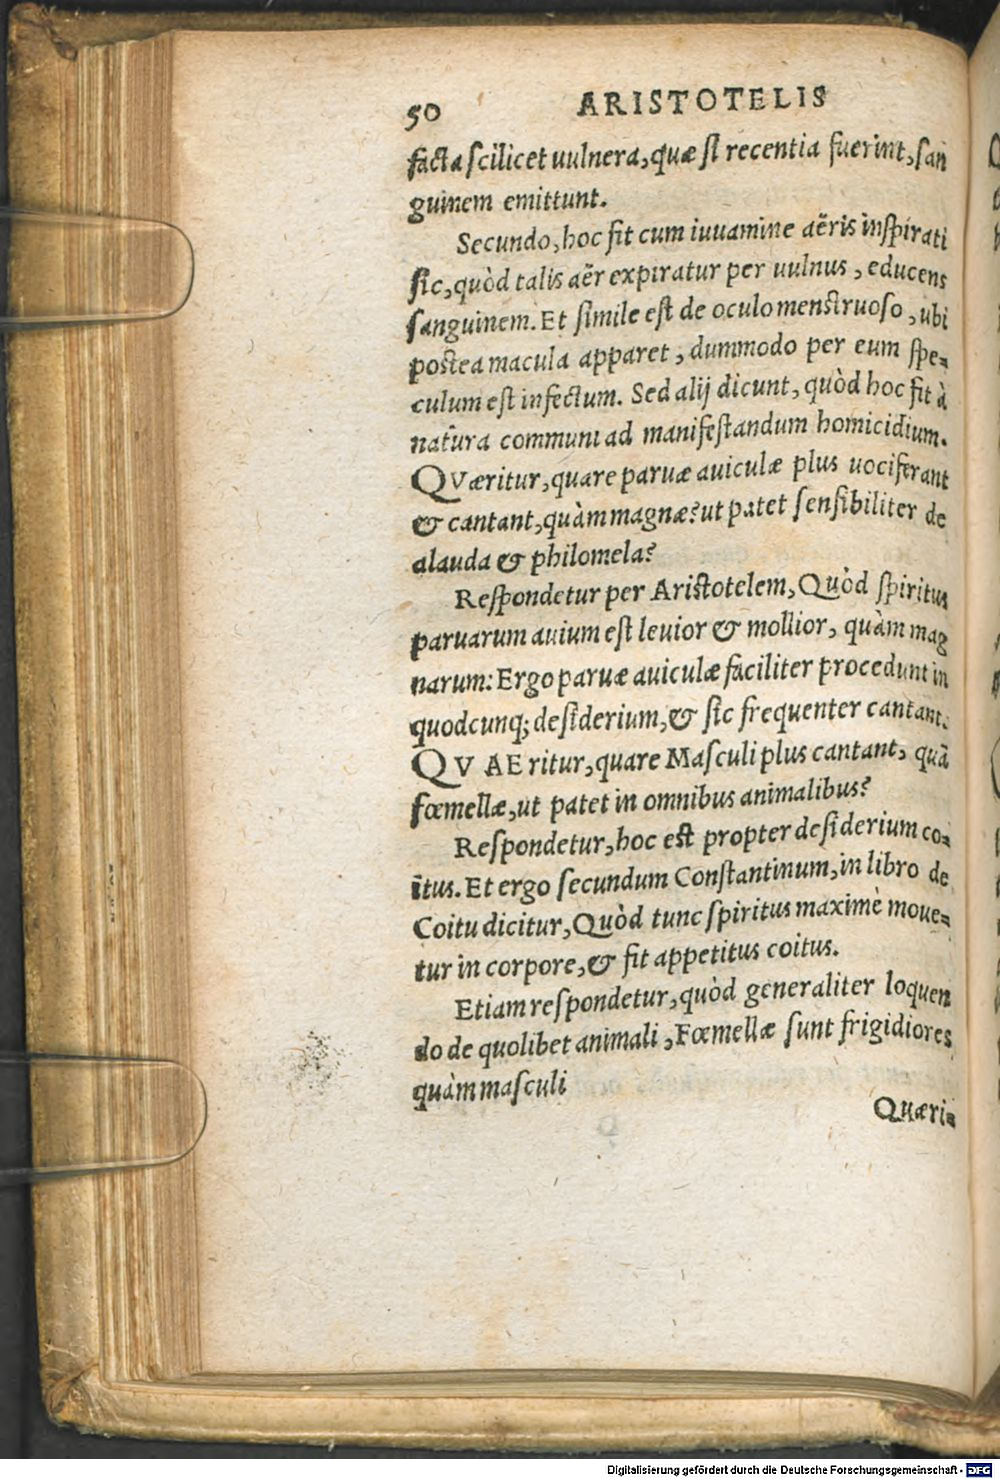 50 ARISTOTELIS
facta scilicet uulnera, quæ si recentia fuerint, san
guinem emittunt.
Secundo, hoc fit cum iuuamine aëris inspirati
sic, quòd talis aër expiratur per uulnus, educens
sanguinem. Et simile est de oculo menstruoso, ubi
postea macula apparet, dummodo per eum spe-
culum est infectum. Sed alij dicunt, quòd hoc fit à
natura communi ad manifestandum homicidium.
QVæritur, quare paruæ auiculæ plus uociferant
& cantant, quàm magnæ? ut patet sensibiliter de
alauda & philomela?
Respondetur per Aristotelem, Quòd spiritus
paruarum auium est leuior & mollior, quàm mag
narum: Ergo paruæ auiculæ faciliter procedunt in
quodcunq; desiderium, & sic frequenter cantant.
QV AE ritur, quare Masculi plus cantant, quã
fœmellæ, ut patet in omnibus animalibus?
Respondetur, hoc est propter desiderium co-
itus. Et ergo secundum Constantinum, in libro de
Coitu dicitur, Quòd tunc spiritus maximè moue-
tur in corpore, & fit appetitus coitus.
Etiam respondetur, quòd generaliter loquen
do de quolibet animali, Fœmellæ sunt frigidiores
quàm masculi
Quæri-
Digitalisierung gefördert durch die Deutsche Forschungsgemeinschaft - DFG